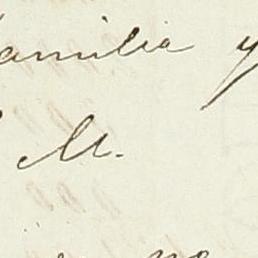 familia y
M.